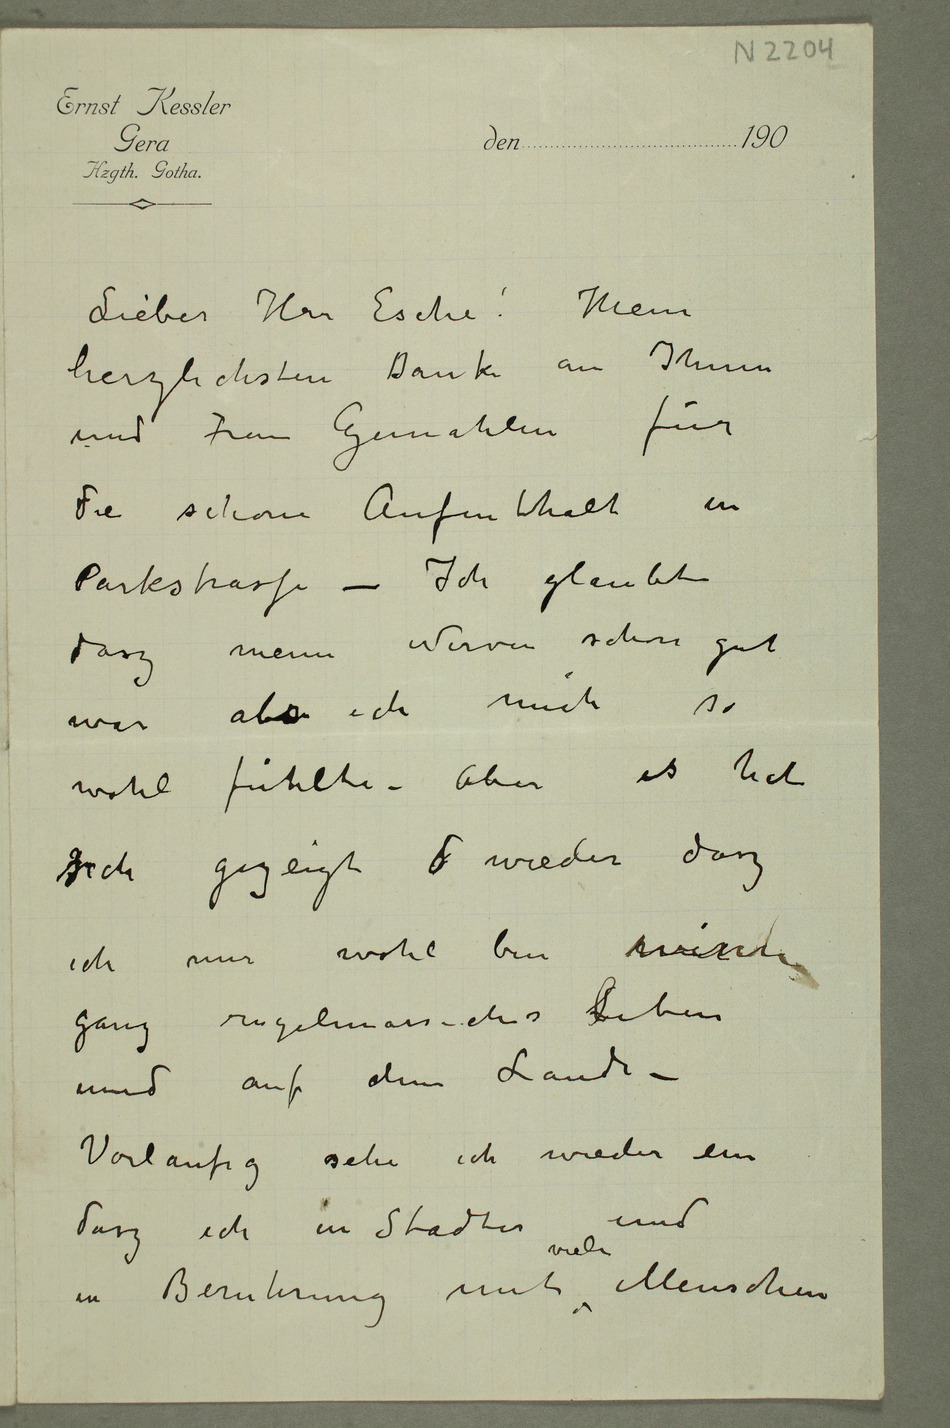 N 2204
Ernst Kessler
Gera
Hzgth. Gotha.
den 190
Lieber Herr Esche! Mein
herzlichsten Dank an Ihnen
und Frau Gemahlin für
die schöne Aufenthalt in
Parkstrasse — Ich glaubte
dasz meine Nerven schon gut
war als ich mich so
wohl fühlte – Aber es hat
sich gezeigt wieder dasz
ich nur wohl bin
ganz regelmässiches Leben
und auf dem Lande —
Vorlaufig sehe ich wieder ein
dasz ich in Städter und
in Beruhrung mit viele Menschen